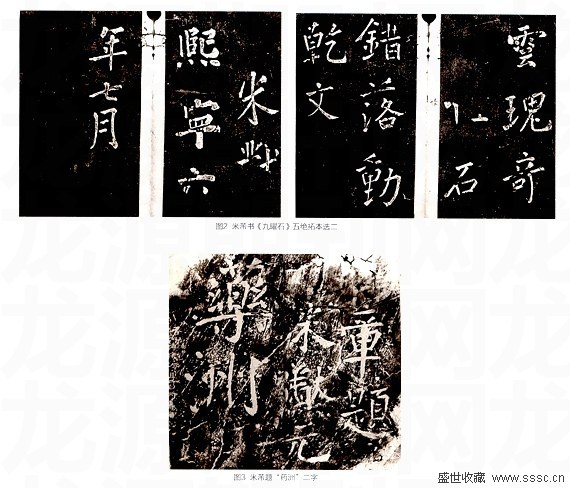 雲瑰奇
石
錯落動
乾文
米黻
熙寧六
年七月
图2 米芾书《九曜石》五绝拓本选二
藥洲
米黻元
章題
图3 米芾题“药洲”二字
盛世收藏 www.sssc.cn